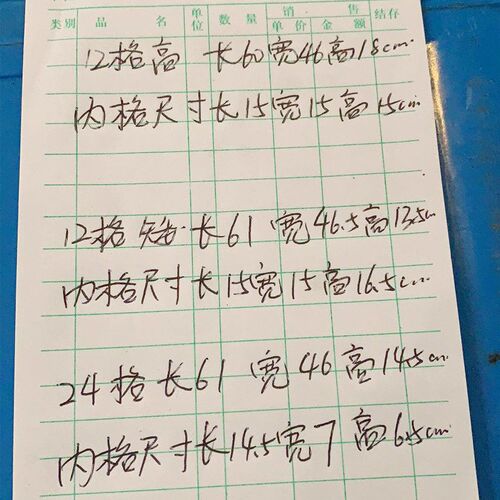 类别 品名 单位 数量 销售 单价 金额 结存
12格高 长60宽46高18cm
内格尺寸长15宽15高15cm
12格矮长61宽46.5高13.5cm
内格尺寸长15宽15高16.5cm
24格长61宽46高14.5cm
内格尺寸长14.5宽7高6.5cm